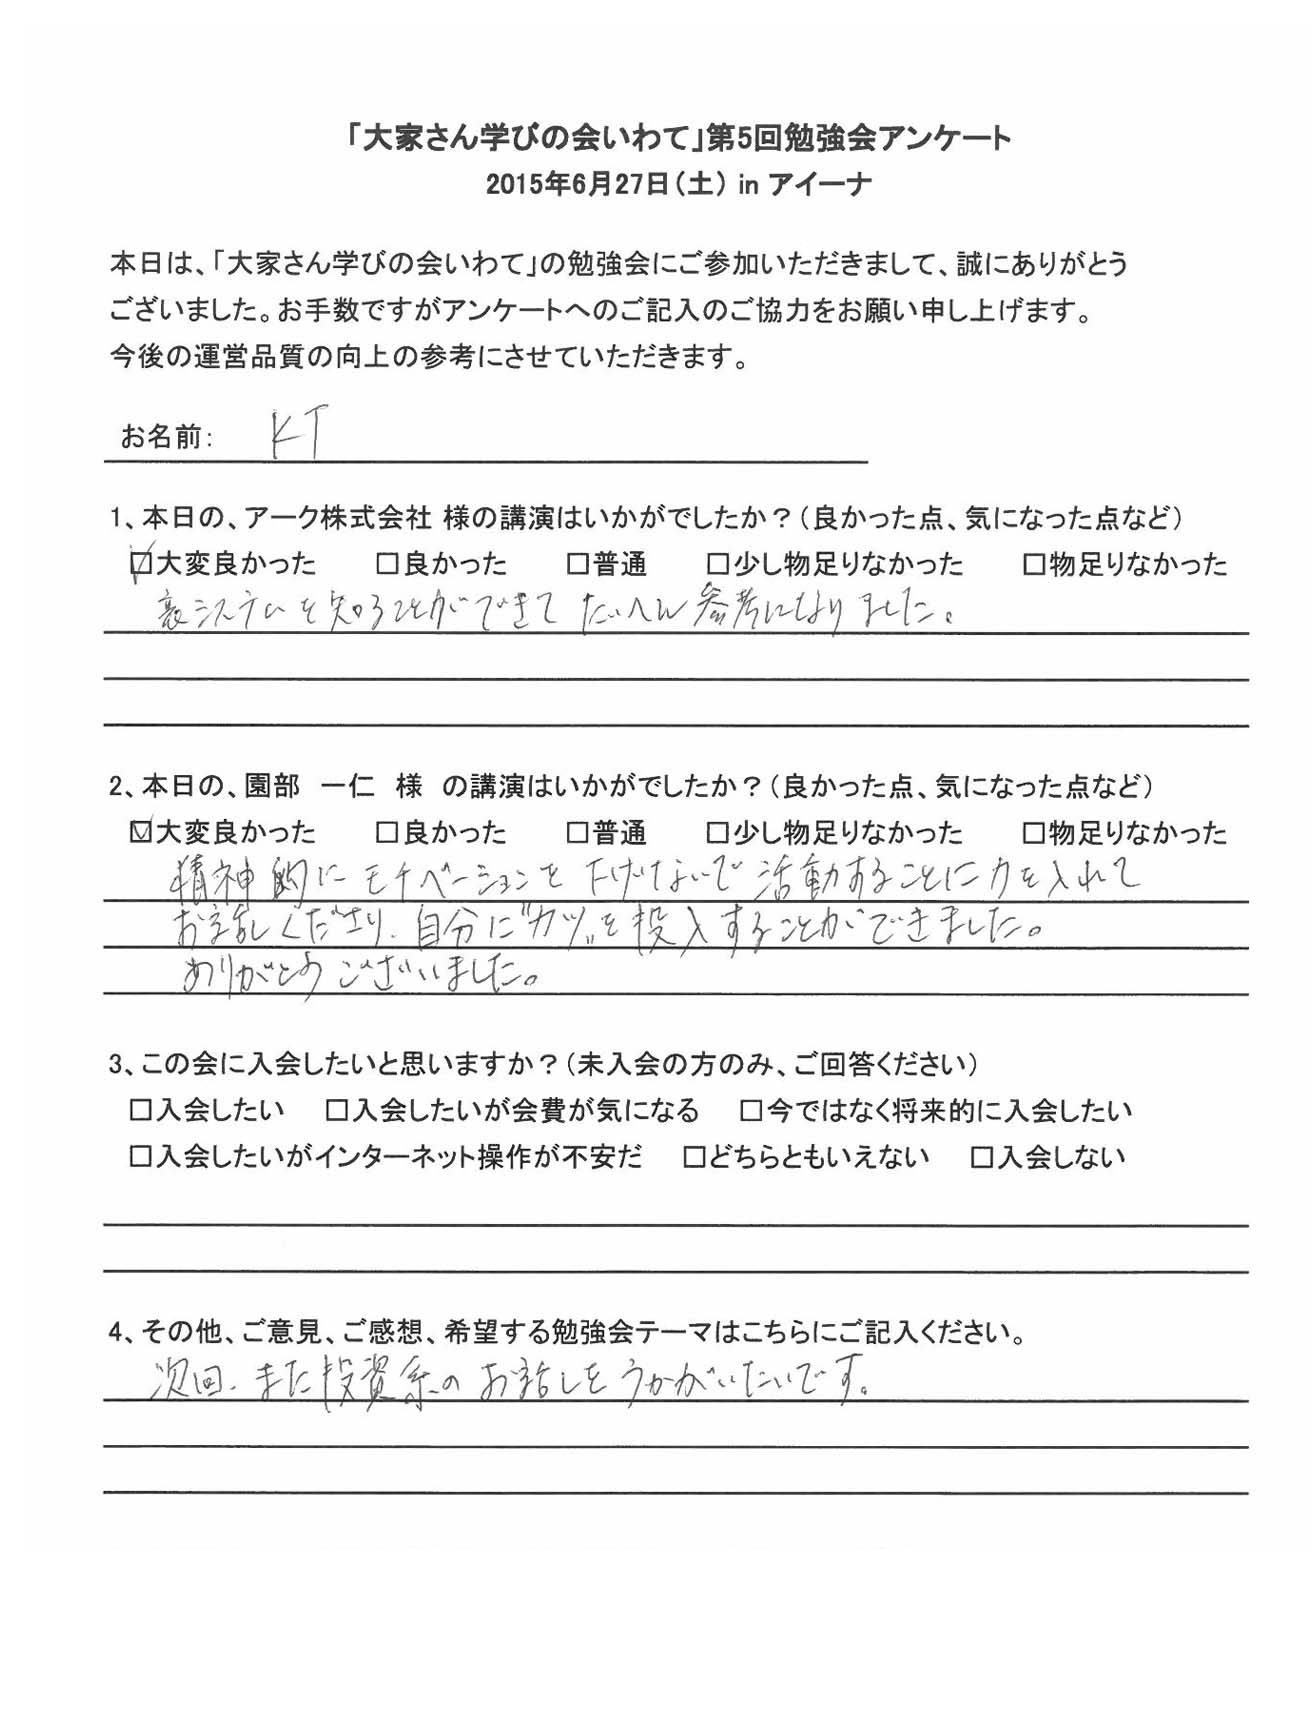 「大家さん学びの会いわて」第5回勉強会アンケート
2015年6月27日（土） in アイーナ
本日は、「大家さん学びの会いわて」の勉強会にご参加いただきまして、誠にありがとう
ございました。お手数ですがアンケートへのご記入のご協力をお願い申し上げます。
今後の運営品質の向上の参考にさせていただきます。
お名前： KT
1、本日の、アーク株式会社 様の講演はいかがでしたか？（良かった点、気になった点など）
☑大変良かった □良かった □普通 □少し物足りなかった □物足りなかった
裏システムを知ることができてたいへん参考になりました。
2、本日の、園部 一仁 様 の講演はいかがでしたか？（良かった点、気になった点など）
☑大変良かった □良かった □普通 □少し物足りなかった □物足りなかった
精神的にモチベーションを下げないで活動することに力を入れて
お話しくださり、自分に"カツ"を投入することができました。
ありがとうございました。
3、この会に入会したいと思いますか？（未入会の方のみ、ご回答ください）
□入会したい □入会したいが会費が気になる □今ではなく将来的に入会したい
□入会したいがインターネット操作が不安だ □どちらともいえない □入会しない
4、その他、ご意見、ご感想、希望する勉強会テーマはこちらにご記入ください。
次回、また投資系のお話しをうかがいたいです。